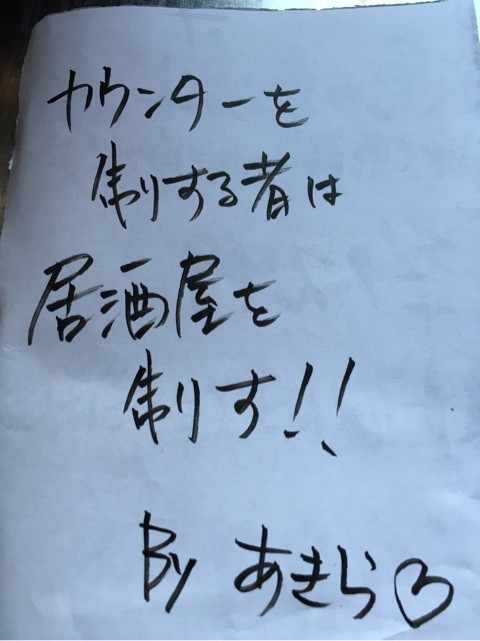 カウンターを
制する者は
居酒屋を
制す!!
By あきら